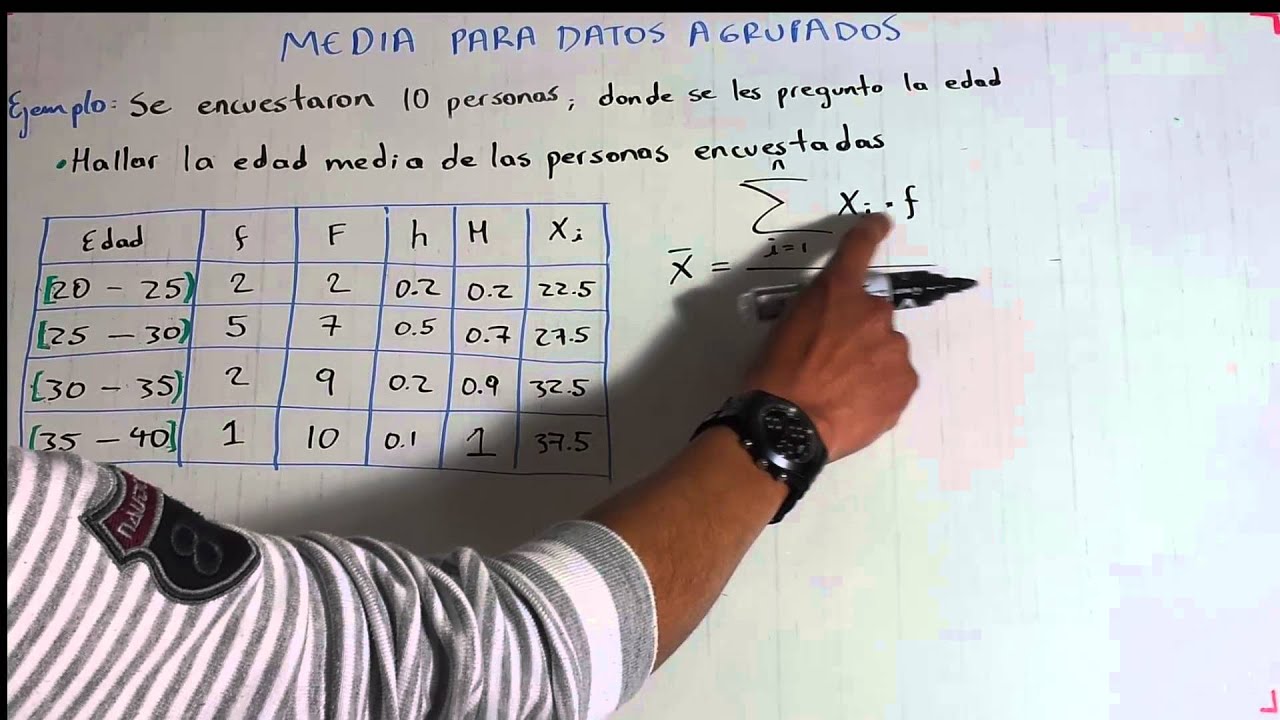 MEDIA PARA DATOS AGRUPADOS
Ejemplo: Se encuestaron 10 personas, donde se les pregunto la edad
• Hallar la edad media de las personas encuestadas
Edad f F h H Xi
[20 - 25) 2 2 0.2 0.2 22.5
[25 - 30) 5 7 0.5 0.7 27.5
[30 - 35) 2 9 0.2 0.9 32.5
[35 - 40] 1 10 0.1 1 37.5
n
∑ Xi · f
i=1
X̄ =